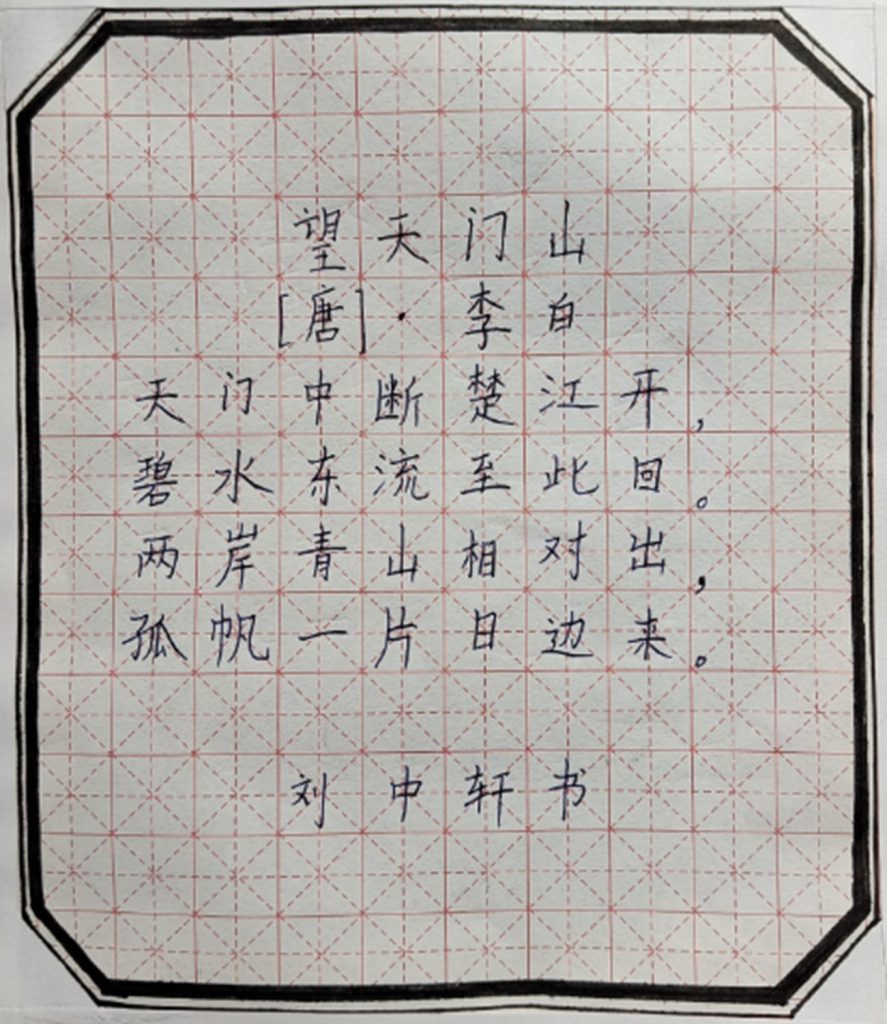 望天门山
[唐]·李白
天门中断楚江开，
碧水东流至此回。
两岸青山相对出，
孤帆一片日边来。
刘中轩书